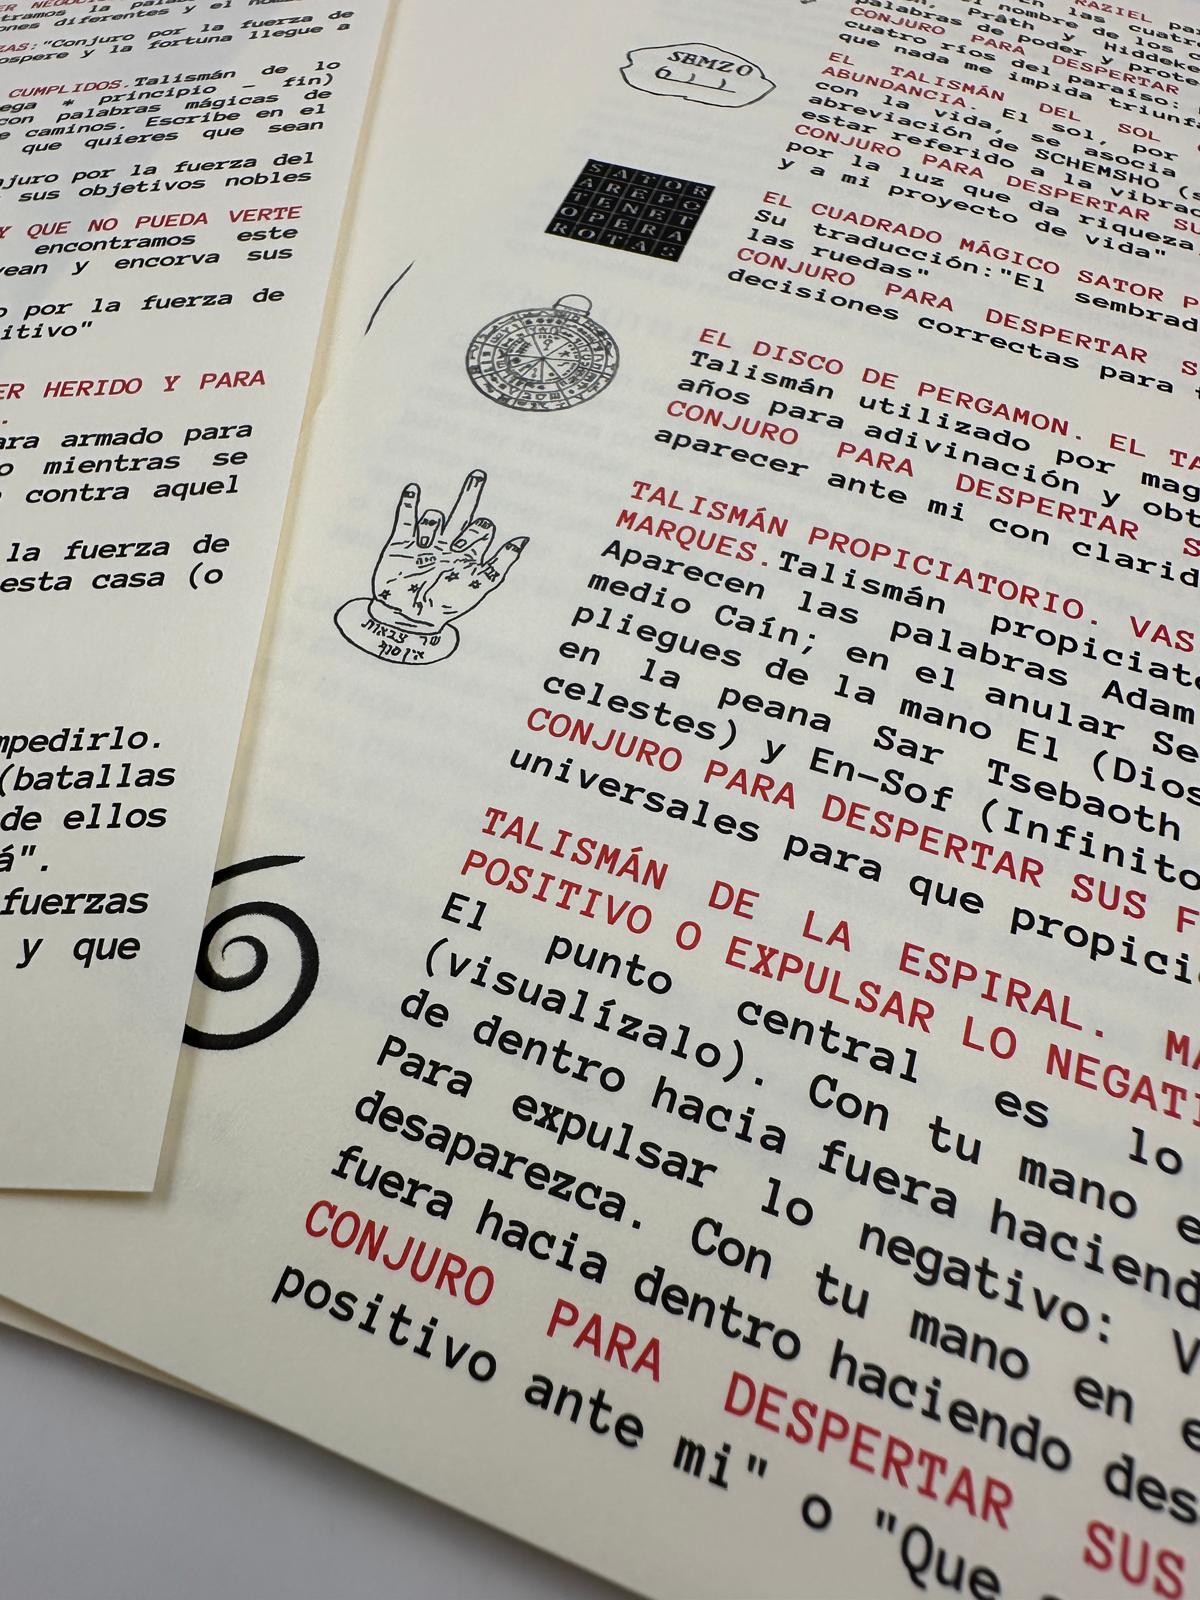 ZAS:"Conjuro por la fuerza de
ospere y la fortuna llegue a
CUMPLIDOS.Talismán de lo
ega * principio – fin)
con palabras mágicas de
e caminos. Escribe en el
que quieres que sean
njuro por la fuerza del
sus objetivos nobles
Y QUE NO PUEDA VERTE
encontramos este
vean y encorva sus
o por la fuerza de
itivo"
ER HERIDO Y PARA
ara armado para
o mientras se
contra aquel
la fuerza de
esta casa (o
mpedirlo.
(batallas
de ellos
á".
fuerzas
y que
RAZIEL
En las cuatro
nombre de los
Prâth y Hiddeke
palabras de poder y prote
CONJURO PARA DESPERTAR
cuatro ríos del paraíso:
que nada me impida triunf
SEMZO
EL TALISMÁN DEL SOL
ABUNDANCIA. El sol, por
con la vida, se asocia
abreviación de SCHEMSHO (s
estar referido a la vibrac
CONJURO PARA DESPERTAR SU
por la luz que da riqueza
y a mi proyecto de vida"
SATOR
AREPO
TENET
OPERA
ROTAS
EL CUADRADO MÁGICO SATOR P
Su traducción:"El sembrad
las ruedas"
CONJURO PARA DESPERTAR S
decisiones correctas para
EL DISCO DE PERGAMON. EL TA
Talismán utilizado por mag
años para adivinación y obt
CONJURO PARA DESPERTAR S
aparecer ante mi con clarid
TALISMÁN PROPICIATORIO. VAS
MARQUES.Talismán propiciato
Aparecen las palabras Adam
medio Caín; en el anular Se
pliegues de la mano El (Dios
en la peana Sar Tsebaoth
celestes) y En-Sof (Infinito
CONJURO PARA DESPERTAR SUS F
universales para que propici
שר צבאות
אין סוף
TALISMÁN DE LA ESPIRAL. MA
POSITIVO O EXPULSAR LO NEGATI
El punto central es lo
(visualízalo). Con tu mano e
de dentro hacia fuera haciend
Para expulsar lo negativo: V
desaparezca. Con tu mano en e
fuera hacia dentro haciendo des
CONJURO PARA DESPERTAR SUS
positivo ante mi" o "Que